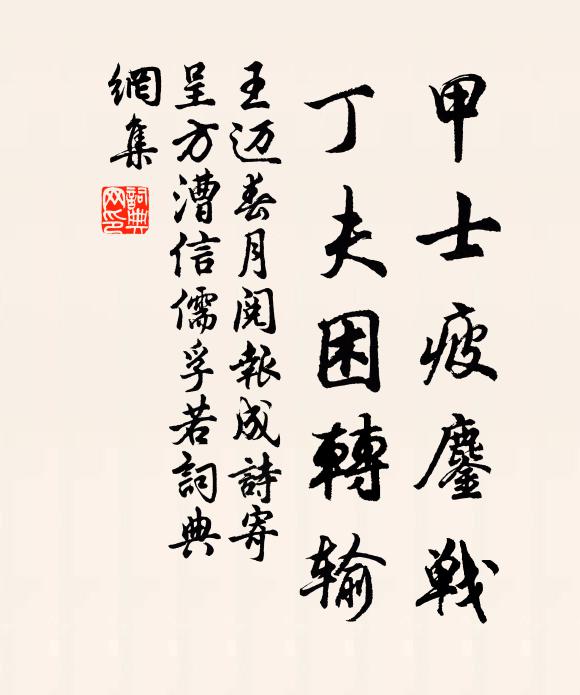 甲士疲鏖戦
丁夫困轉输
王迈春月閱報成詩寄
呈方漕信儒孚若詞典
網集
詞典网印